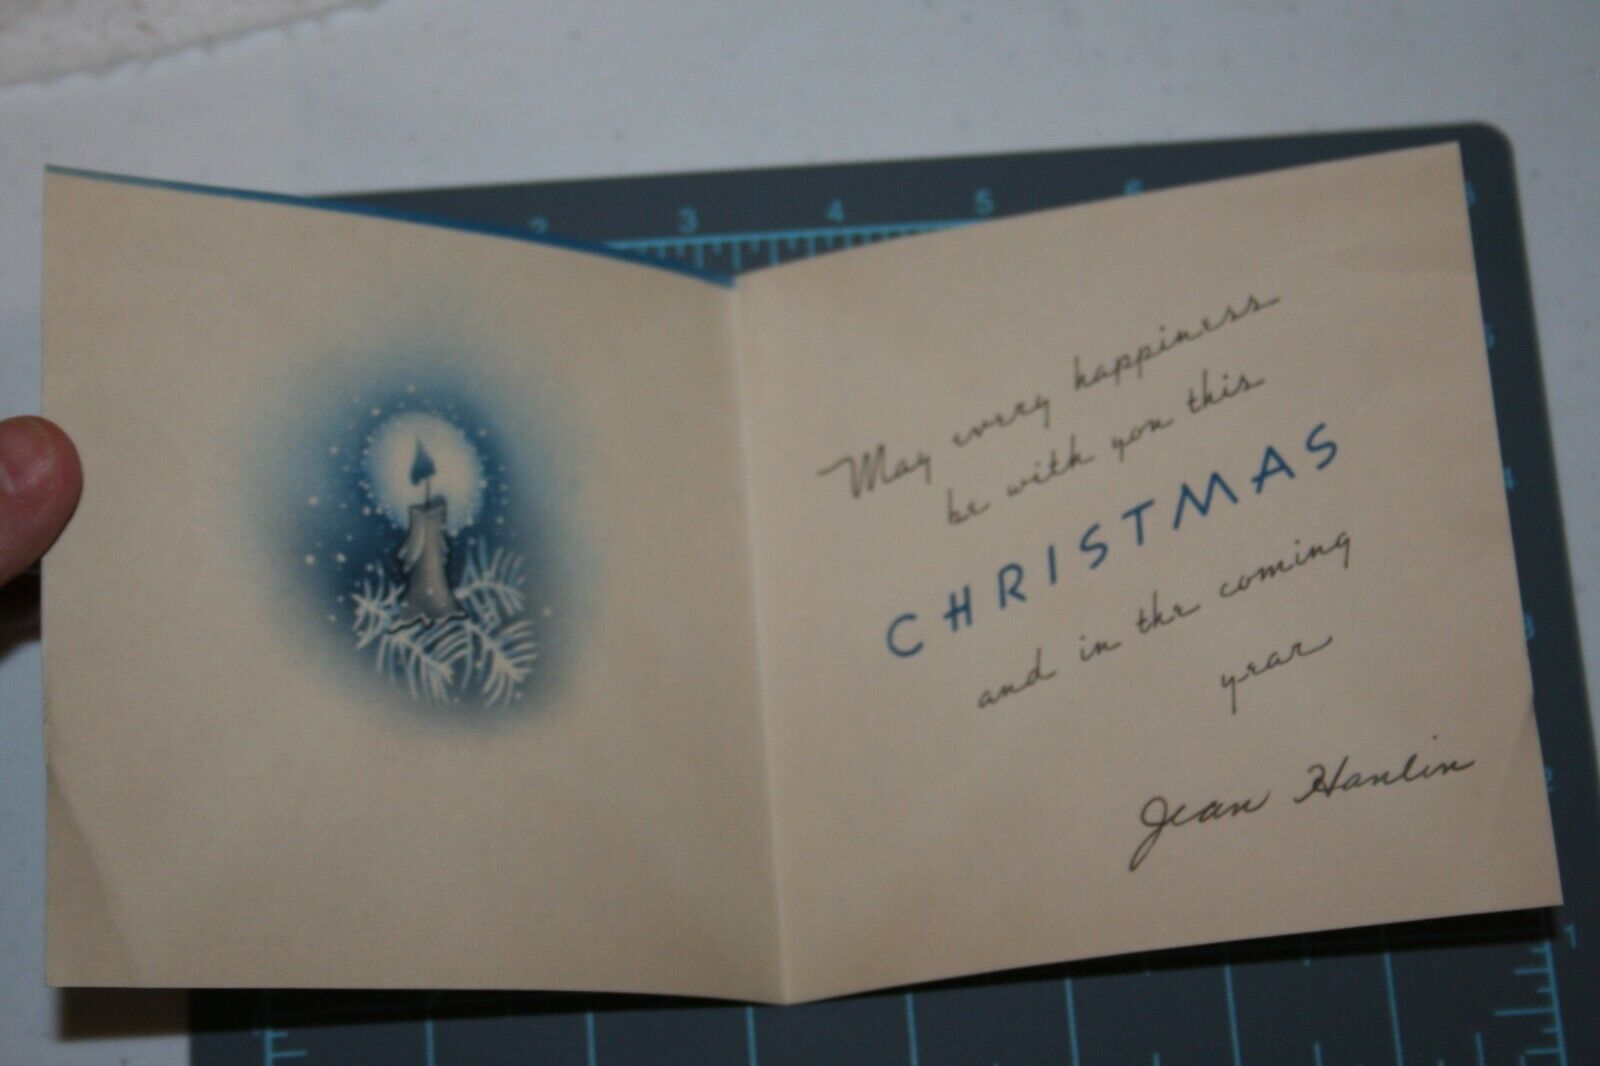 2 3 4 5 6 8
May every happiness
be with you this
CHRISTMAS
and in the coming
year
Jean Hanlin
5
4
3
2
1